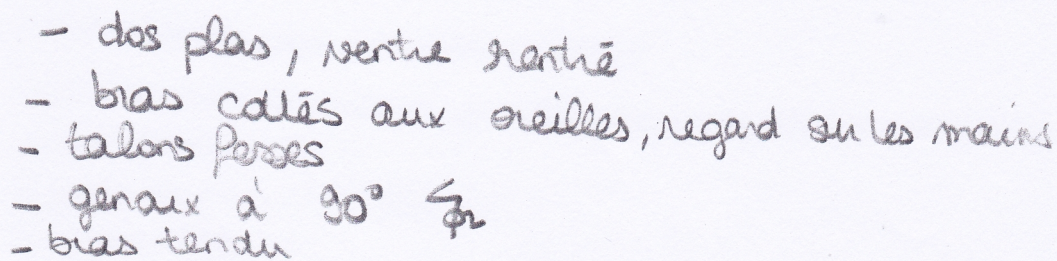 - dos plas, ventre rentré
- bras collés aux oreilles, regard sur les mains
- talons fesses
- genoux à 90°
- bras tendu